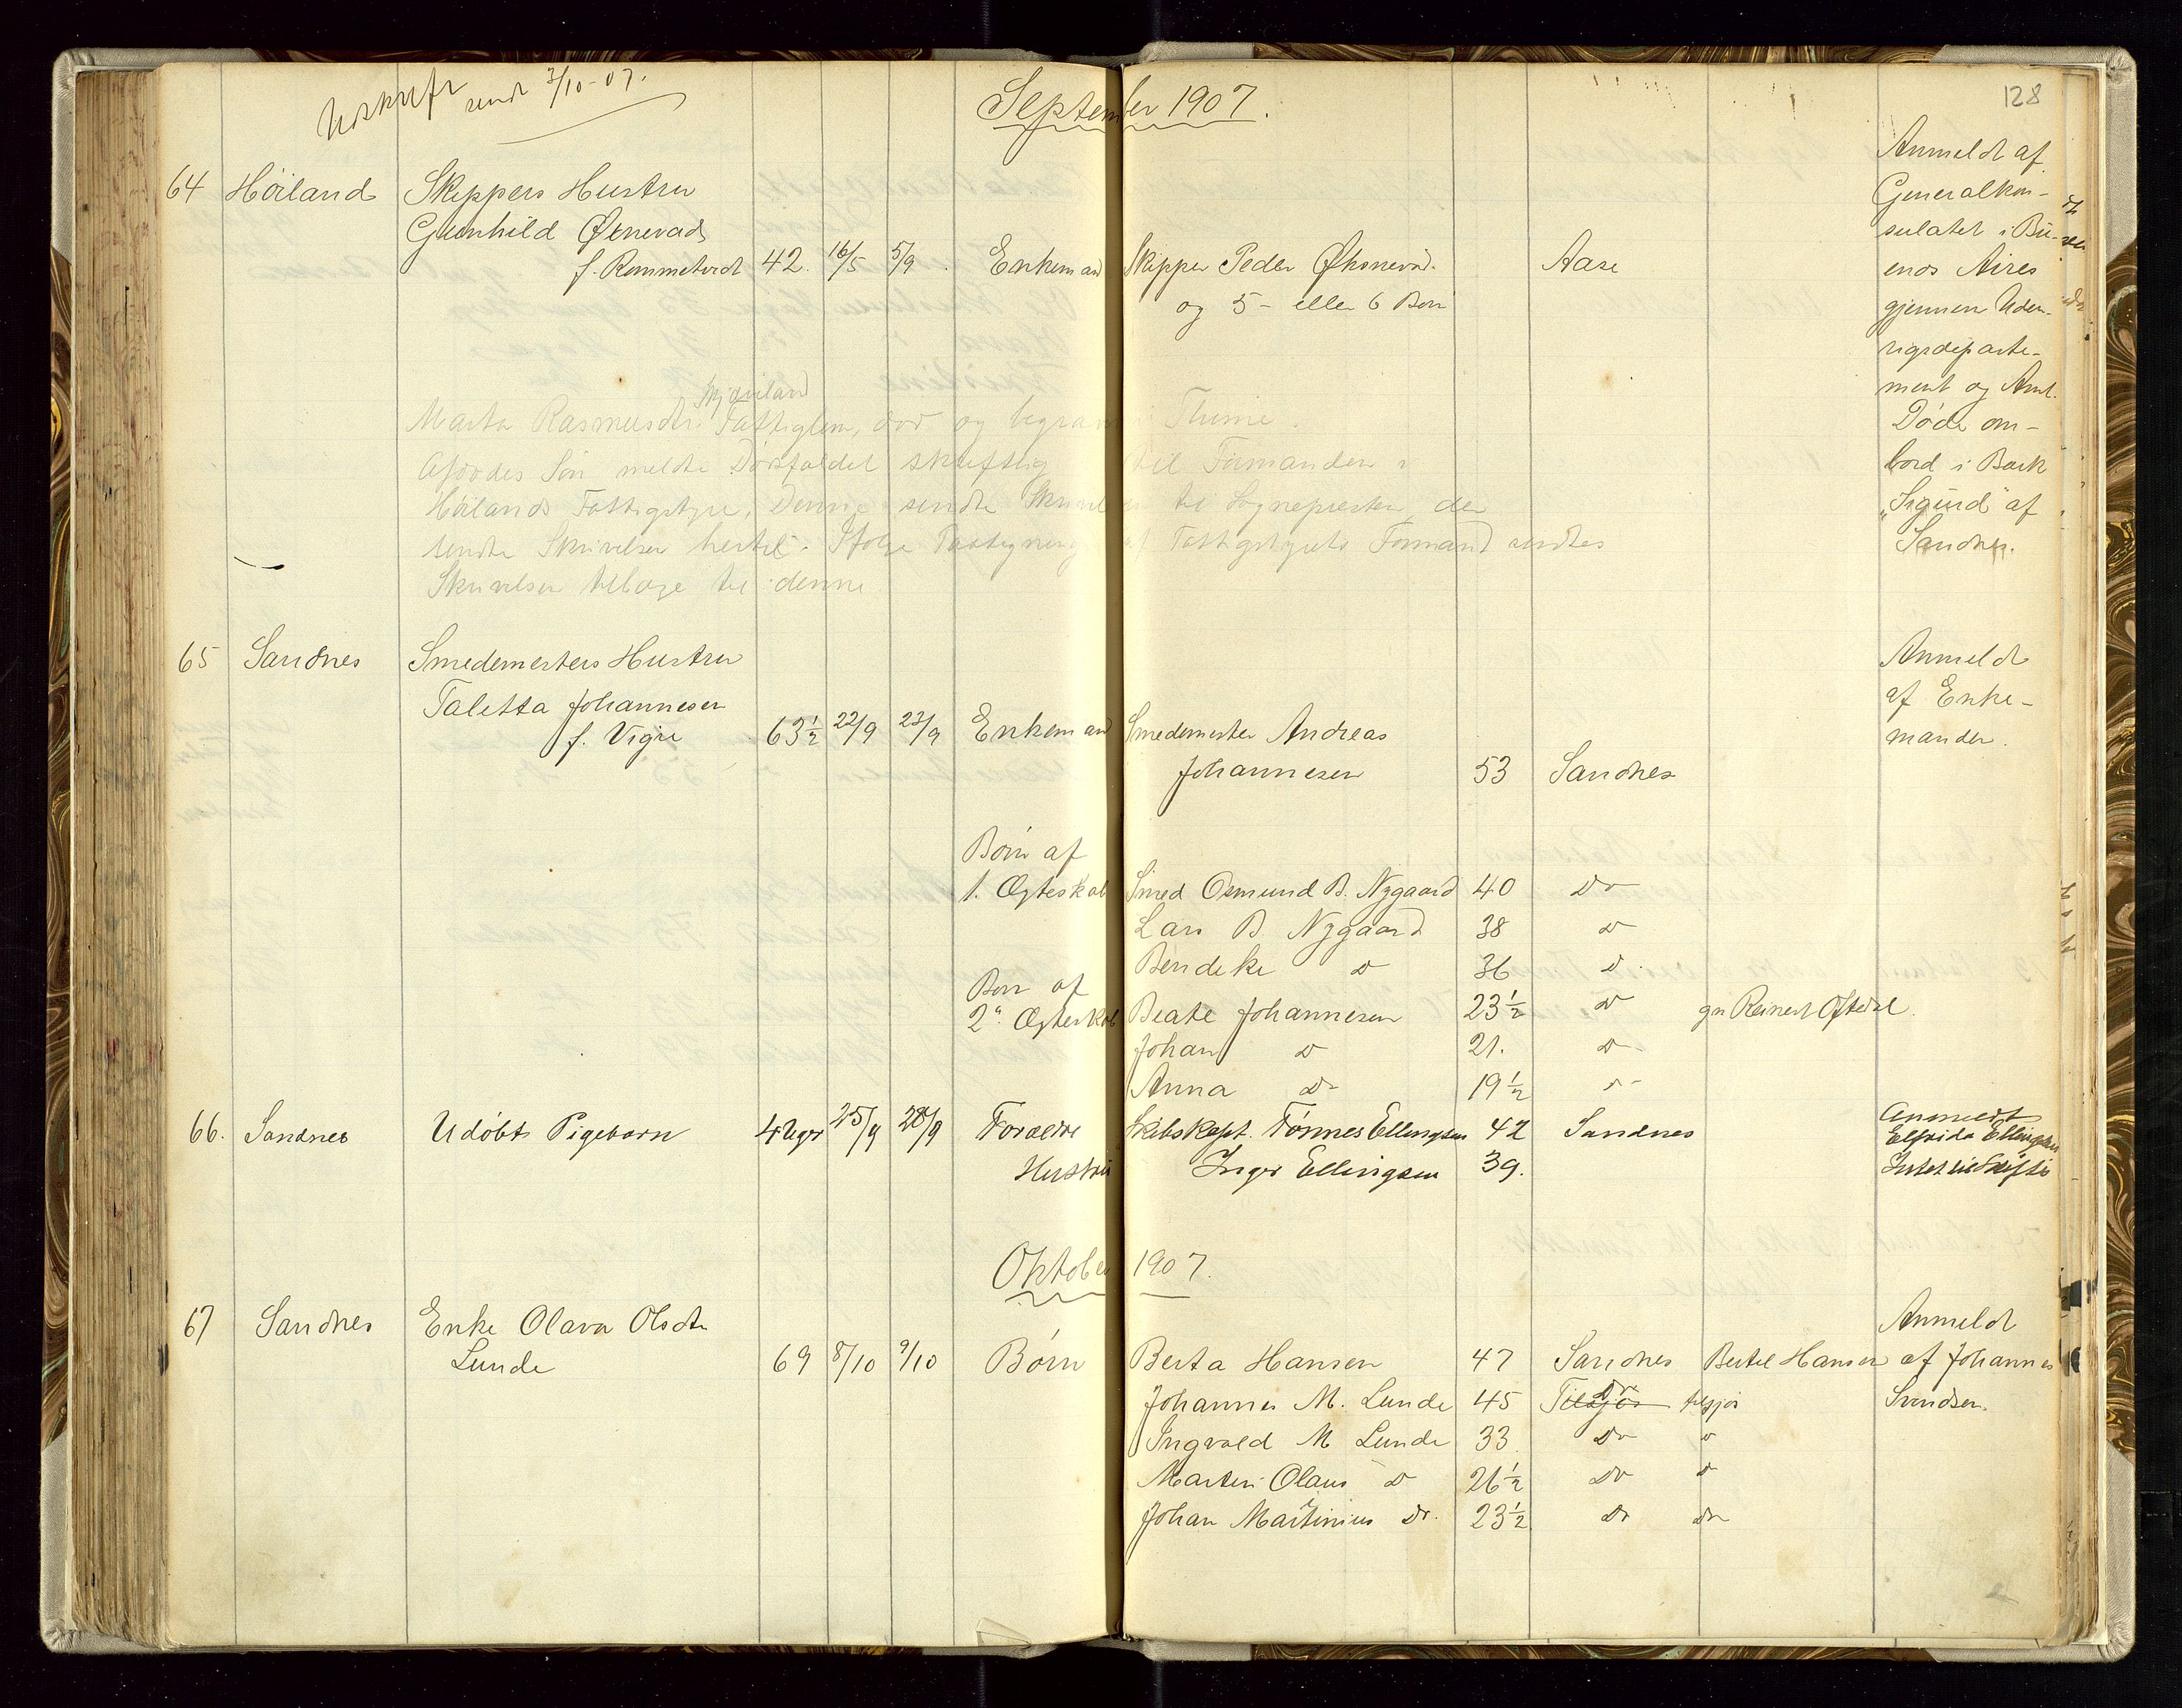 Udskrift sendt 3/10-07.
September 1907.
128
64 Höiland Skippers Hustru
Gunhild Øxnevad
f. Rommetvedt 42. 16/5 5/9 Enkemand Skipper Peder Øksnevad. Aase
og 5- eller 6 Børn
Anmeldt af
Generalkon-
sulatet i Bu-
enos Aires
gjennem Uden-
rigsdeparte-
ment og Amt.
Døde om-
bord i Bark
"Sigurd" af
Sandnes.
Marta Rasmusdtr. Fattiglem, død og begravet i Thime.
Afdødes Søn meldte Dødsfaldet skriftlig til Formanden i
Höilands Fattigstyre, Denne sendte Skrivelsen til Sognepresten, der
sendte Skrivelsen hertil. Ifølge af Fattigstyrets Formand sendtes
Skrivelsen tilbage til denne
65 Sandnes Smedemesters Hustru
Taletta Johannesen
f. Vigre 63½ 22/9 23/9 Enkemand Smedemester Andreas
Johannesen 53 Sandnes
Anmeldt
af Enke-
manden.
Børn af
1. Ægteskab Smed Osmund B. Nygaard 40 Do
Lars B. Nygaard 38 Do
Bendike Do 36 Do
Børn af
2. Ægteskab Beate Johannesen 23½ Do gm Reinert Oftedal.
Johan Do 21. Do
Anna Do 19½ Do
66. Sandnes Udöbt Pigebarn 4 Uger 25/9 28/9 Forældre Skibskapt. Tönnes Ellingsen 42 Sandnes
Hustru Inger Ellingsen 39.
Anmeldt
Elfrida Ellingsen
Intet til Skifte
Oktober 1907.
67 Sandnes Enke Olava Olsdtr
Lunde 69 8/10 9/10 Børn Berta Hansen 47 Sandnes Bertel Hansen
Johannes M. Lunde 45 Tilsjös Do tilsjøs
Ingvald M Lunde 33 Do Do
Martin Olaus Do 26½ Do Do
Johan Martinius Do. 23½ Do Do
Anmeldt
af Johannes
Svendsen.